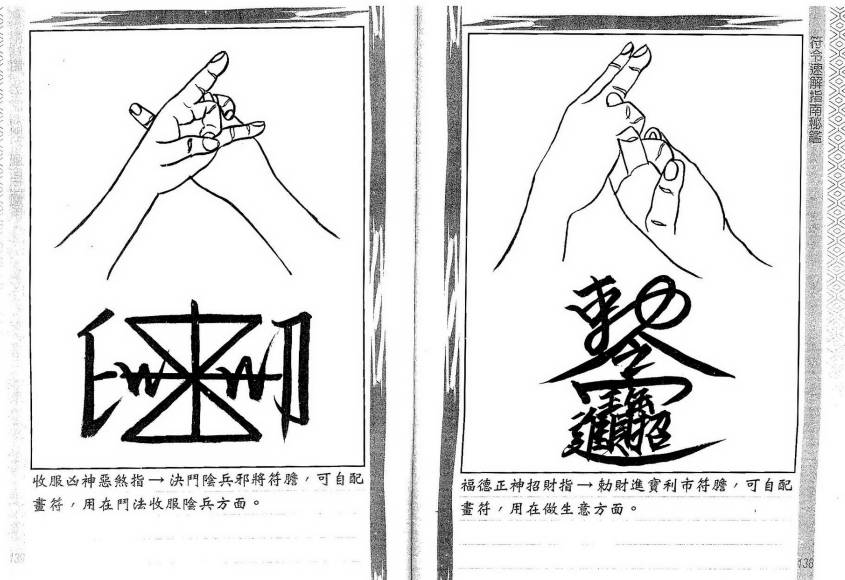 符令速解指南秘鑑
勅令
招財進寶
福德正神招財指→勅財進寶利市符膽，可自配
畫符，用在做生意方面。
138
收服凶神惡煞指→決鬥陰兵邪將符膽，可自配
畫符，用在鬥法收服陰兵方面。